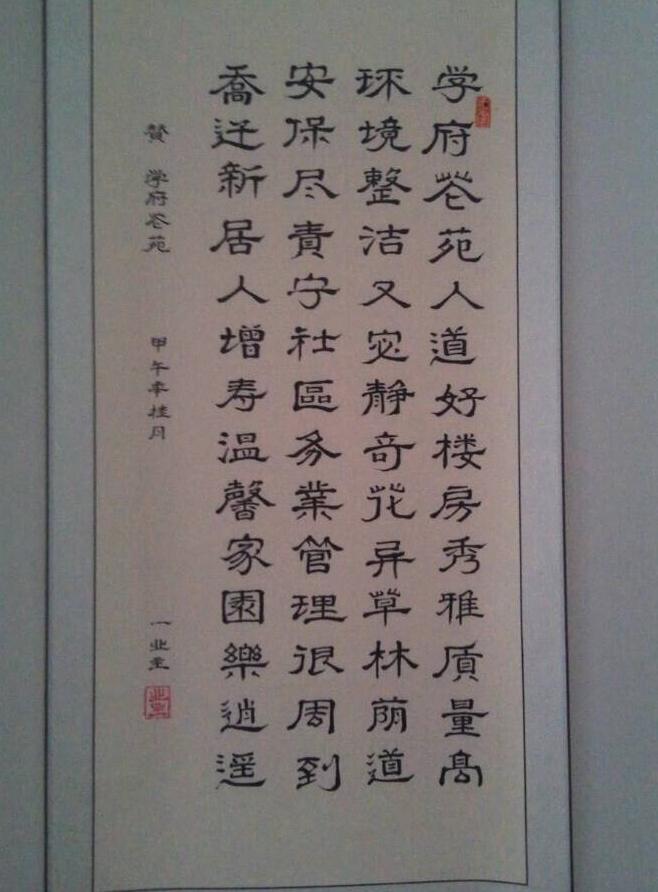 学府花苑人道好楼房秀雅质量高
环境整洁又宓静奇花异草林荫道
安保尽責守社區务業管理很周到
喬迁新居人增寿温馨家園樂逍遥
赞 学府花苑 甲午年桂月 一业主